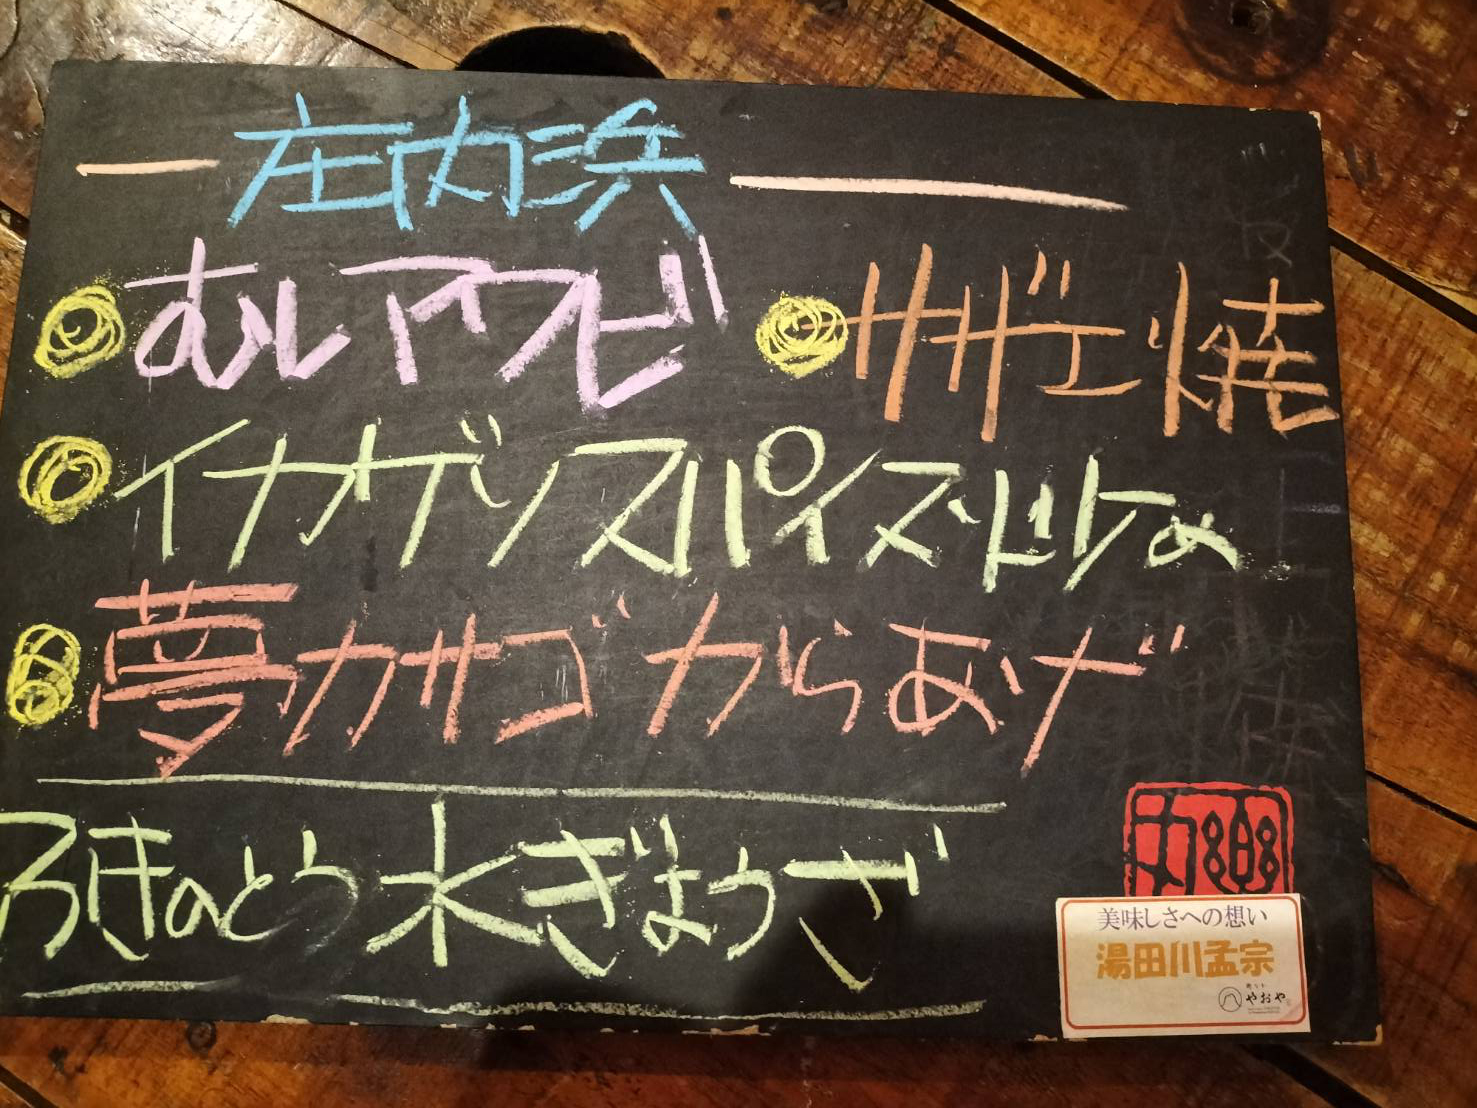 庄内浜
むしアワビ
サザエ焼
イカゲソスパイスいため
夢カサゴ からあげ
ふきのとう水ぎょうざ
美味しさへの想い
湯田川孟宗
やおや